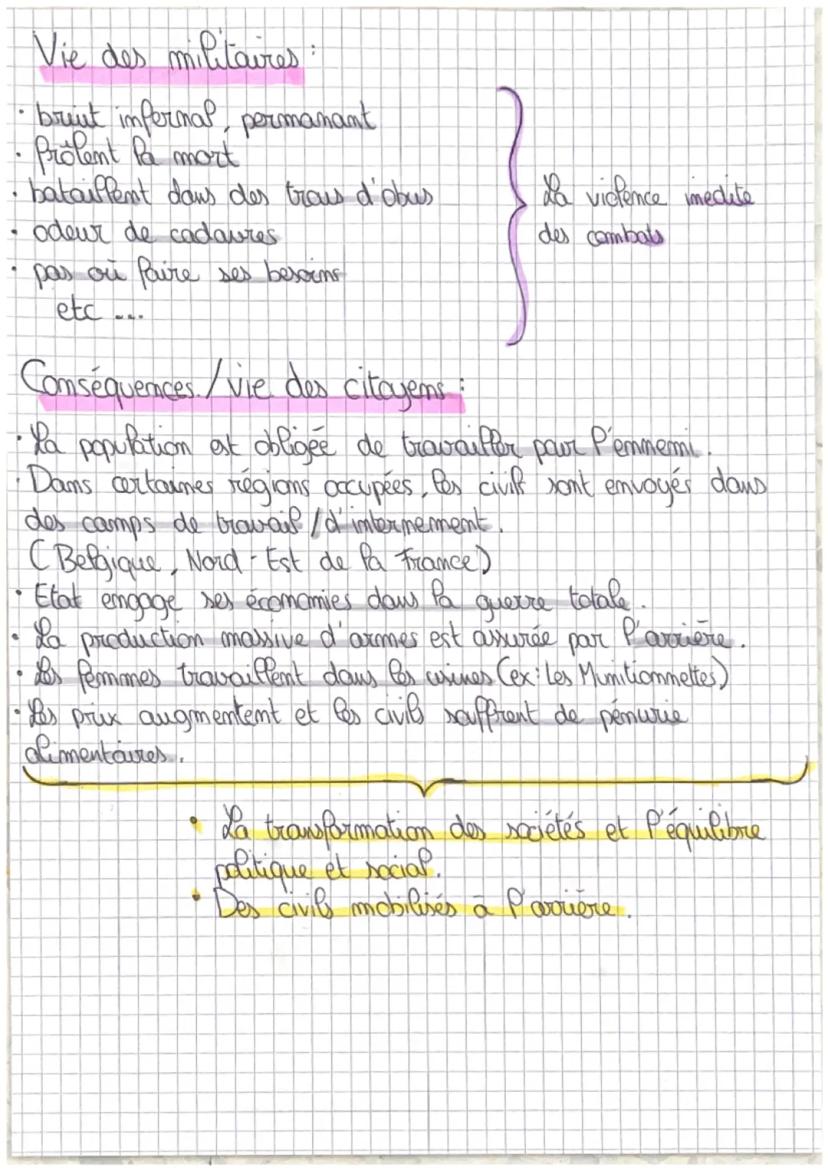 Vie des militaires :
· bruit infernal, permanant
· frôlent la mort
· bataillent dans des trous d'obus
· odeur de cadavres
· pas où faire ses besoins
etc ...
La violence inedite
des combats
Conséquences / vie des citoyens :
· La population est obligée de travailler pour l'ennemi.
· Dans certaines régions occupées, les civils sont envoyés dans
des camps de travail / d'internement.
(Belgique, Nord-Est de la France)
· Etat engage ses économies dans la guerre totale.
· La production massive d'armes est assurée par l'arrière.
· Les femmes travaillent dans les usines (ex: Les Munitionnettes)
· Les prix augmentent et les civils souffrent de pénurie
alimentaires.
· La transformation des sociétés et l'équilibre
politique et social.
· Des civils mobilisés à l'arrière.